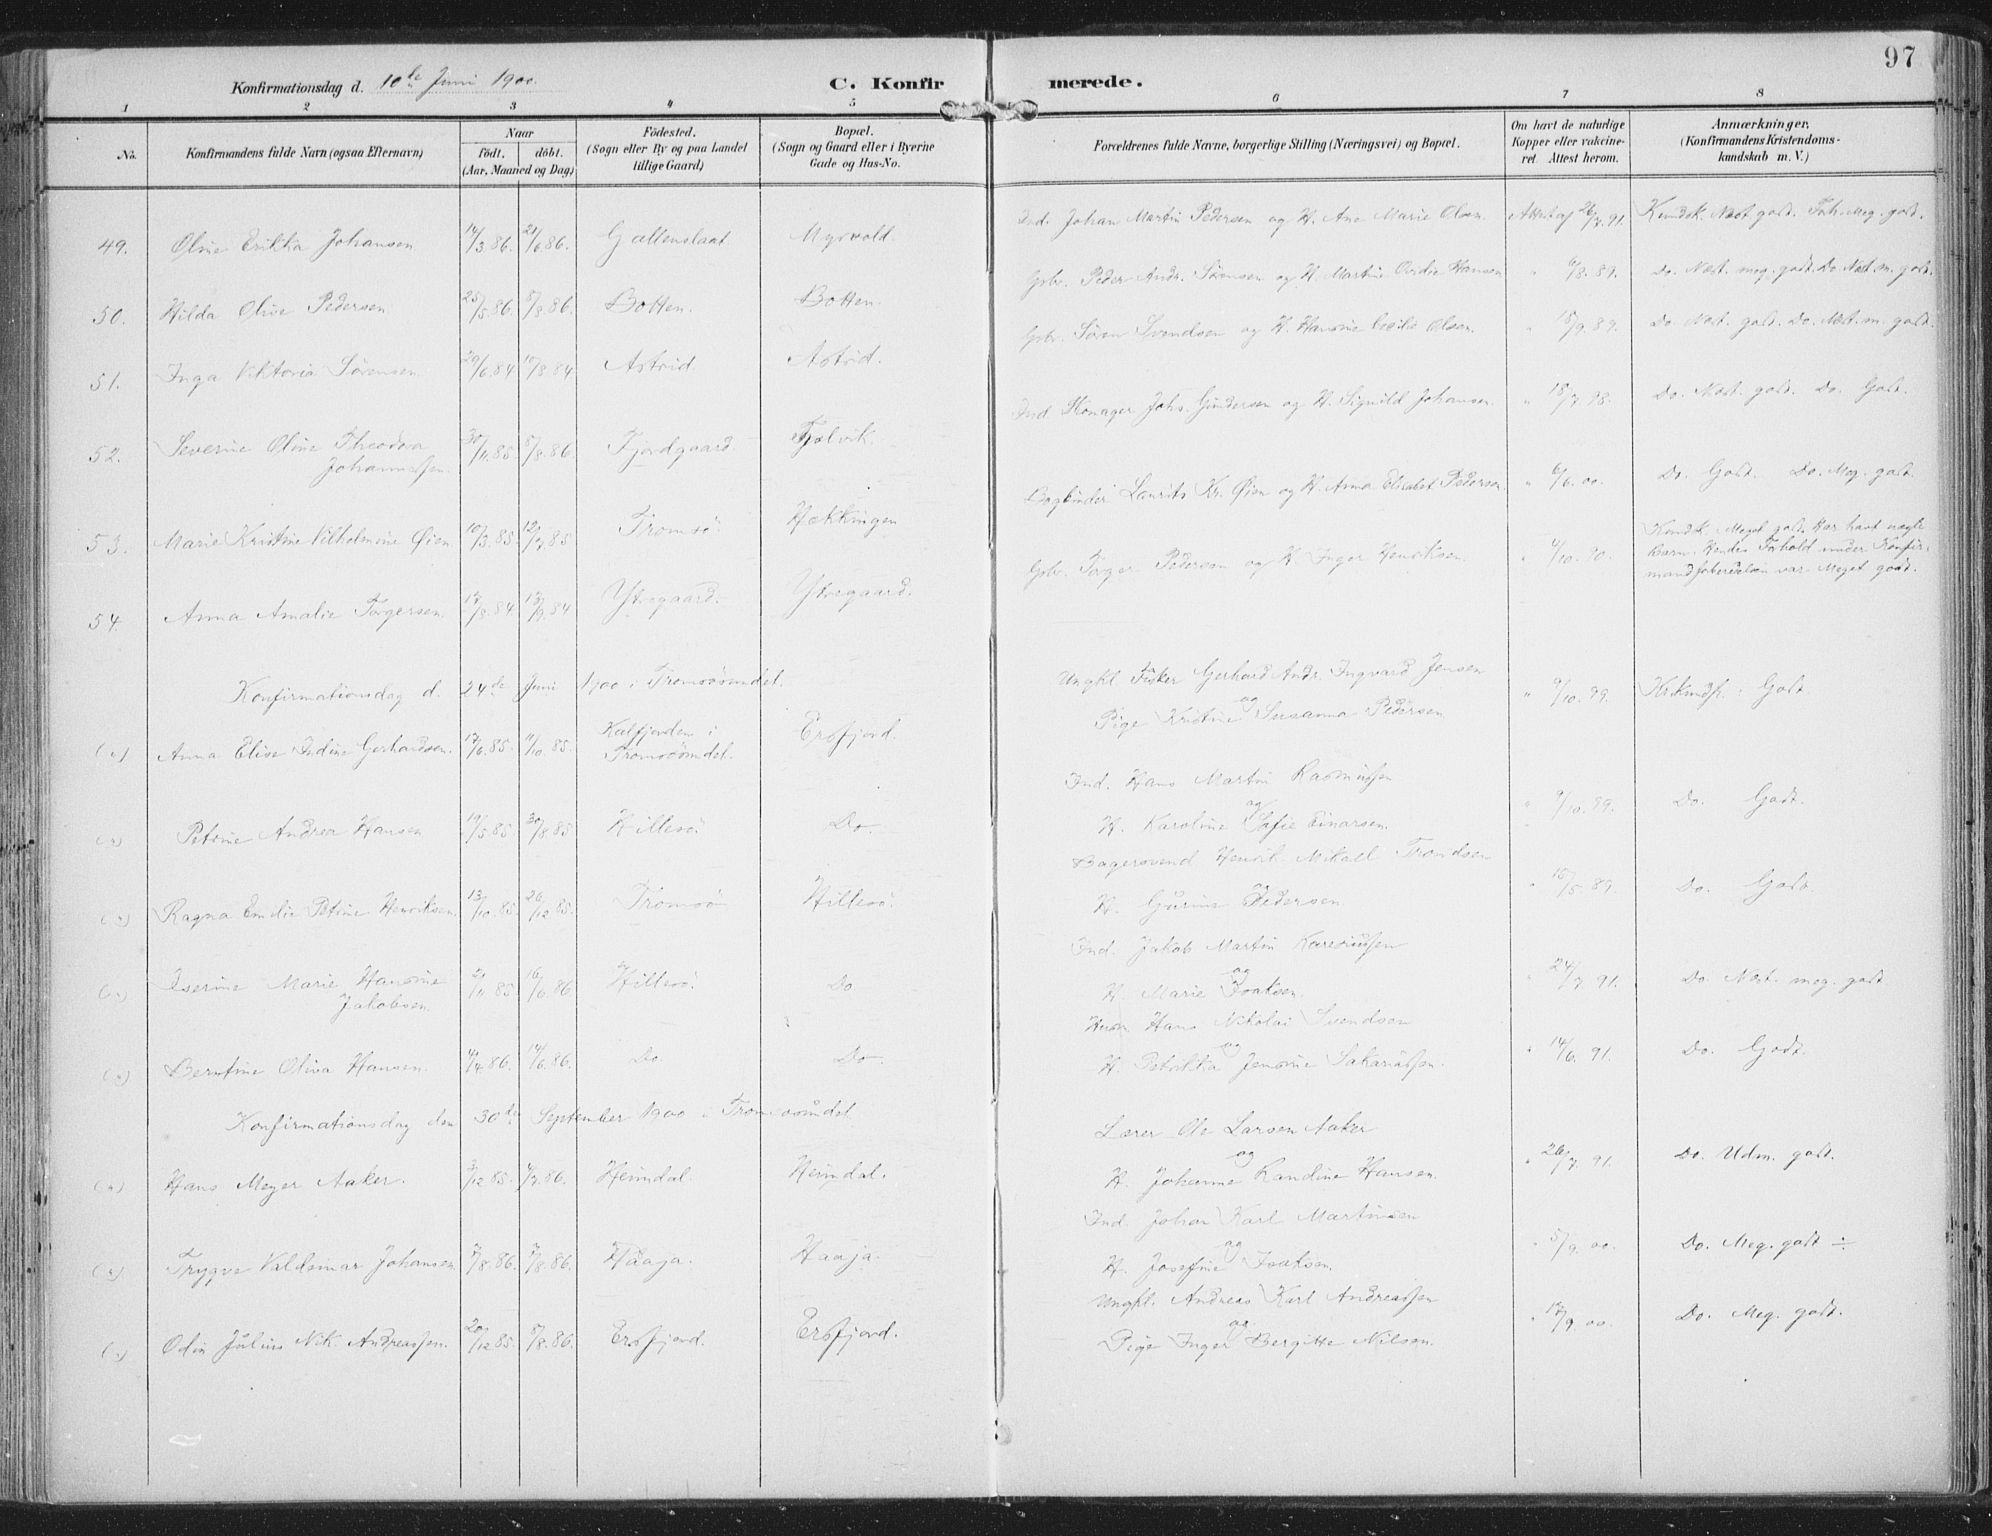 97
Konfirmationsdag d. 10de Juni 1900.
C. Konfirmerede.
1 2 3 4 5 6 7 8
No.
Konfirmandens fulde Navn (ogsaa Efternavn)
Naar
Födt. döbt.
(Aar, Maaned og Dag)
Födested.
(Sogn eller By og paa Landet tillige Gaard)
Bopæl.
(Sogn og Gaard eller i Byerne Gade og Hus-No.
Forældrenes fulde Navne, borgerlige Stilling (Næringsvei) og Bopæl.
Om havt de naturlige Kopper eller vakcineret. Attest herom.
Anmærkninger.
(Konfirmandens Kristendomskundskab m. V.)
49. Oline Erikka Johansen 14/3.86. 21/6.86. Gallenslaat. Myrvold. Ind. Johan Martin Pedersen og H. Ane Marie Olsen. Attest af 26/7.91. Kundsk. Næst godt. Forh. Meg. godt.
50. Hilda Olive Pedersen 25/5.86. 8/8.86. Botten. Botten. Gbr. Peder Andr. Sörensen og H. Martine Hansen " 6/8.89. Do. Næst. meg. godt. Do. Næst. m. godt.
51. Inga Viktoria Sörensen 29/6.84 10/8.84 Astrid. Astrid. Gbr. Sören Svendsen og H. Hansine Cecilie Olsen. " 18/9.89. Do. Næst. godt. Do. Næst. m. godt.
52. Severine Oline Theodora Johannessen. 30/11.85. 8/8.86. Fjordgaard. Tjælvik. Ind. Jons. Gundersen og H. Signild Johansen. " 18/7.98. Do. Næst. godt. Do. Godt.
53. Marie Kristine Vilhelmine Öien 10/3.85 12/7.85 Tromsö Hækkingen Bogbinder Laurits Kr. Öien og H. Anna Elisabet Pedersen. " 6/6.00. Do. Godt. Do. Meg. godt.
54. Anna Amalie Torgersen. 17/8.84 13/9.84 Ytregaard. Ytregaard. Gbr. Torger Pedersen og H. Inger Henriksen. " 4/10.90. Kundsk. Meget godt. Har havt uægte Barn. Hendes Forhold under Konfirmandforberedelsen var Meget godt.
Konfirmationsdag d. 24de Juni 1900 i Tromsösundet.
Anna Elise Indine Gerhardsen. 17/6.85. 11/10.85. Kalfjorden i Tromsösundet. Ersfjord. Ungkl. Fisker Gerhard Andr. Ingvard Jensen og Pige Kristine Susanna Pedersen " 9/10.99. Kr. Kundsk: Godt
Petrine Andrea Hansen 19/5.85. 30/8.85 Hillesö. Do. Ind. Hans Martin Rasmussen og H. Karoline Sofie Einarsen. " 9/10.99. Do. Godt.
Ragna Emilie Petrine Henriksen. 13/10.85. 26/12.85. Tromsö Hillesö. Bagersvend Henrik Mikael Trondsen og H. Gurine Pedersen. " 15/5.89. Do. Godt.
Iserine Marie Hansine Jakobsen. 2/11.85. 16/6.86 Hillesö. Do Ind. Jakob Martin Karesiussen og H. Marie Isaksen. " 24/7.91. Do. Næst. meg. godt
Berntine Oliva Hansen. 4/4.86. 14/6.86. Do Do Husm Hans Nikolai Svendsen og H. Petrikka Jensine Sakariassen. " 14/6.91. Do. Godt.
Konfirmationsdag den 30de September 1900 i Tromsösundet
Hans Meyer Aaker. 3/12.85. 4/7.86. Heimdal. Heimdal. Lærer Ole Larsen Aaker og H. Johanne Randine Hansen. " 26/7.91. Do. Udm. godt.
Trygve Valdemar Johansen. 7/8.86. 7/8.86. Haaja. Haaja. Ind. Johan Karl Martinsen og H. Josefine Isaksen. " 5/9.00. Do. Meg. godt ÷
Odin Julius Nik. Andreassen. 20/12.85. 8/8.86. Ersfjord. Ersfjord. Ungkl. Andreas Karl Andreassen og Pige Inger Bergitte Nilsen. " 17/9.00. Do. Meg. godt.